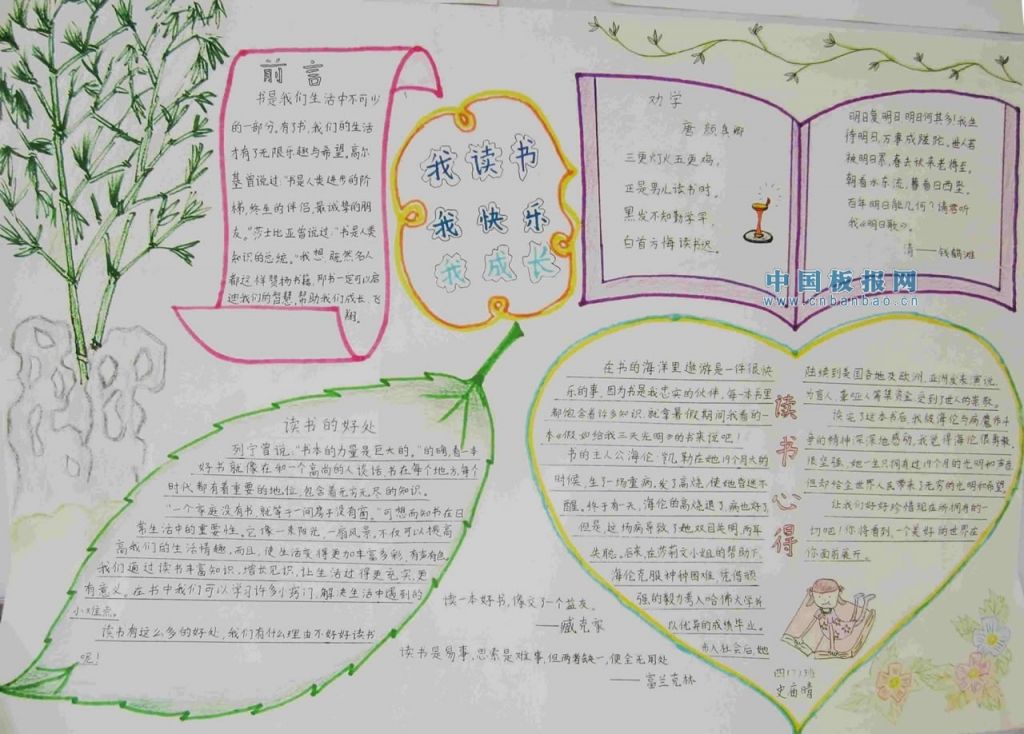 前言
书是我们生活中不可少
的一部分。有了书,我们的生活
才有了无限乐趣与希望。高尔
基曾说过:“书是人类进步的阶
梯,终生的伴侣,最诚挚的朋
友。”莎士比亚曾说过:“书是人类
知识的总统。”我想,既然名人
都这样赞扬书籍,那书一定可以启
迪我们的智慧,帮助我们成长、飞
翔。
我读书
我快乐
我成长
劝学
唐 颜真卿
三更灯火五更鸡,
正是男儿读书时。
黑发不知勤学早,
白首方悔读书迟。
明日复明日,明日何其多!我生
待明日,万事成蹉跎。世人若
被明日累,春去秋来老将至。
朝看水东流,暮看日西坠。
百年明日能几何?请君听
我《明日歌》。
清——钱鹤滩
中国板报网
www.cnbanbao.cn
读书的好处
列宁曾说,“书本的力量是巨大的。”的确,看一本
好书就像在和一个高尚的人谈话。书在每个地方、每个
时代都有着重要的地位,包含着无穷无尽的知识。
“一个家庭没有书,就等于一间房子没有窗。”可想而知书在日
常生活中的重要性。它像一束阳光,一扇风景,不仅可以提高
高我们的生活情趣,而且,使生活变得更加丰富多彩,有声有色。
我们通过读书丰富知识,增长见识,让生活过得更充实,更
有意义。在书中我们可以学习许多小窍门,解决生活中遇到的
小难点。
读书有这么多的好处,我们有什么理由不好好读书
呢!
读一本好书,像交了一个益友。
——臧克家
读书是易事,思索是难事,但两者缺一,便全无用处
——富兰克林
读书心得
在书的海洋里遨游是一件很快
乐的事,因为书是我忠实的伙伴,每一本书里
都饱含着许多知识,就拿暑假期间我看的一
本《假如给我三天光明》的书来说吧!
书的主人公海伦·凯勒在她19个月大的
时候,生了一场重病,发了高烧,使她昏迷不
醒。终于有一天,海伦的高烧退了,病也好了,
但是,这场病导致了她双目失明,两耳
失聪。后来,在莎莉文小姐的帮助下,
海伦克服种种困难,凭借顽
强的毅力考入哈佛大学并
以优异的成绩毕业。
步入社会后,她
陆续到美国各地及欧洲、亚洲发表演说,
为盲人、聋哑人筹集资金,受到了世人的赞歌。
读完了这本书后,我被海伦与病魔作斗
争的精神深深地感动,我觉得海伦很勇敢,
很坚强,她一生只拥有过19个月的光明和声音,
但却给全世界人民带来了无穷的光明和希望。
让我们好好珍惜现在所拥有的一
切吧!你将看到,一个美好的世界在
你面前展开。
四(7)班
史庙晴